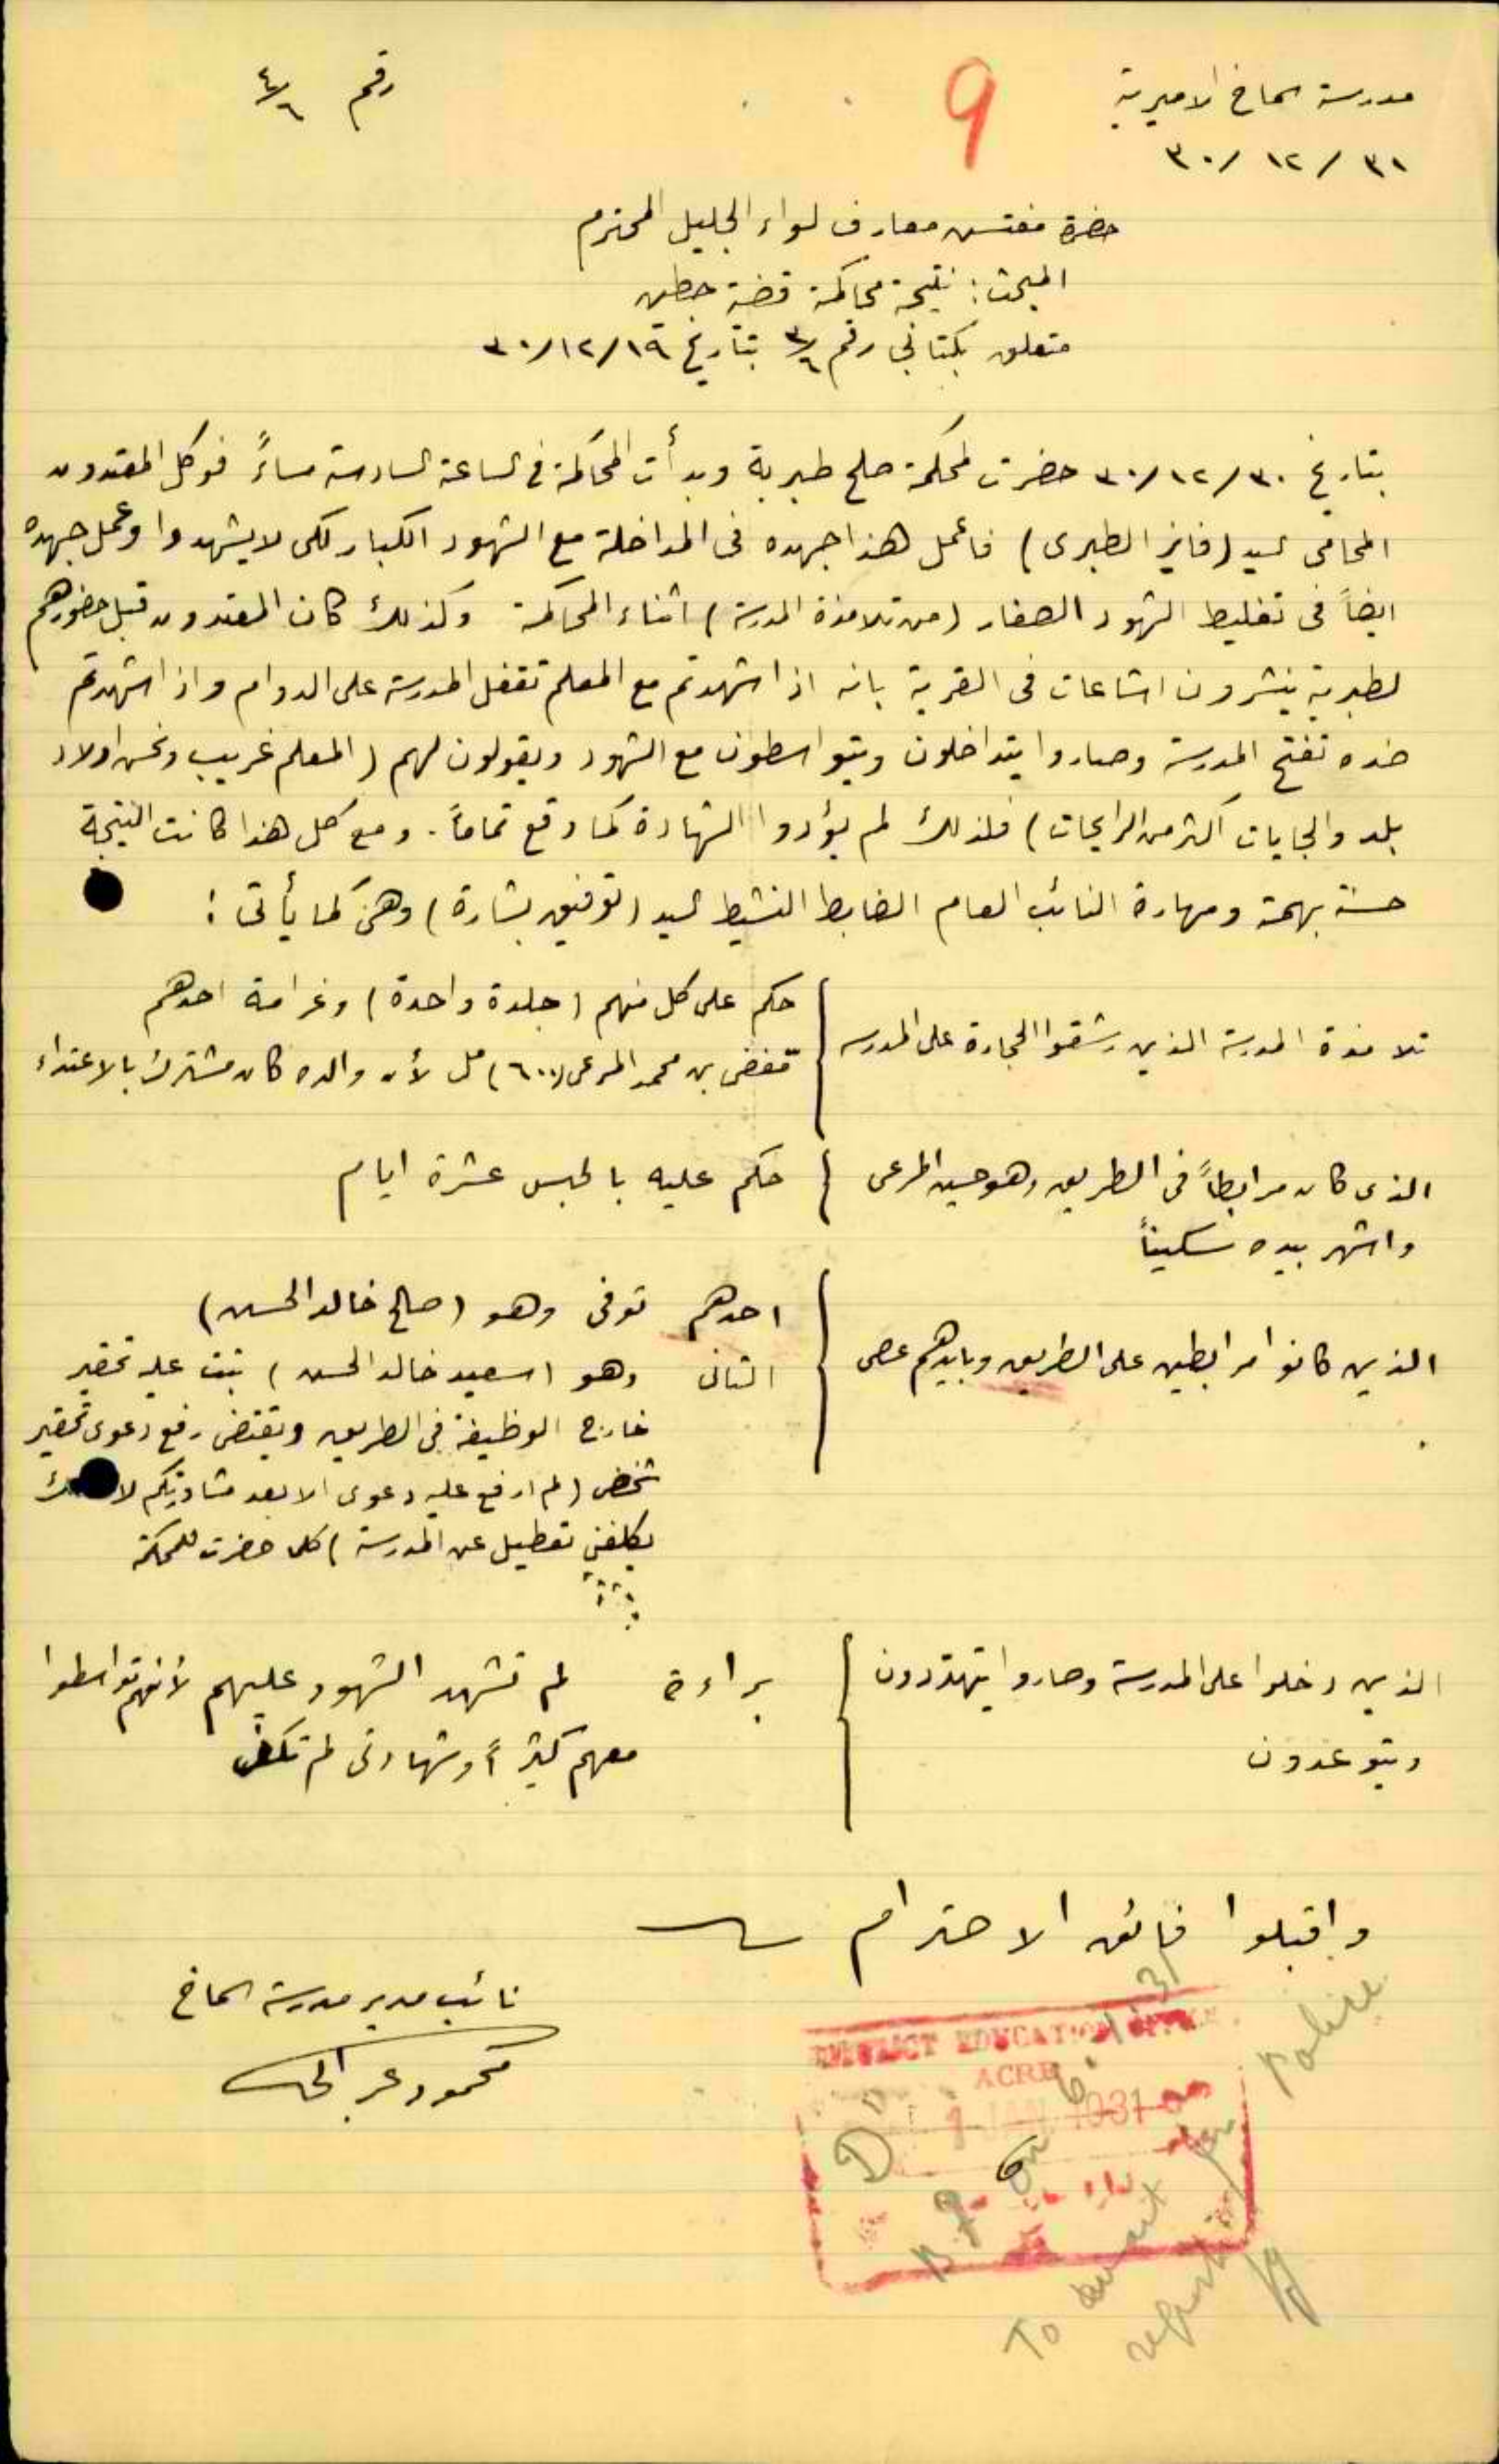 مدرسة سماخ الاميرية
رقم ٤/٦
9
٣١ / ١٢ / ٣٠
حضرة مفتش معارف لواء الجليل المحترم
المبحث: نتيجة محاكمة قضية حطين
متعلق بكتابي رقم ٣/٦ بتاريخ ١٩/١٢/٣٠
بتاريخ ٣٠/١٢/٣٠ حضرت لمحكمة صلح طبرية وبدأت المحاكمة في الساعة السادسة مساءً فوكل المعتدون
المحامي السيد (فايز الطبري) فاعمل هذا جهده في المداخلة مع الشهود الكبار لكي لا يشهدوا وعمل جهده
ايضاً في تغليط الشهود الصغار (من تلامذة المدرسة) اثناء المحاكمة وكذلك كان المعتدون قبل حضورهم
لطبرية ينشرون اشاعات في القرية بانه اذا شهدتم مع المعلم تقفل المدرسة على الدوام واذا شهدتم
ضده تفتح المدرسة وصاروا يتداخلون ويتواسطون مع الشهود ويقولون لهم (المعلم غريب ونحن اولاد
بلد والجايات اكثر من الرايحات) فلذلك لم يؤدوا الشهادة كما وقع تماماً. ومع كل هذا كانت النتيجة
حسنة بهمة ومهارة النائب العام الضابط النشيط السيد (توفيق بشارة) وهي كما يأتي:
تلامذة المدرسة الذين رشقوا الحجارة على المدرسة
حكم على كل منهم (جلدة واحدة) وغرامة احدهم
بن محمد المرعي (٦٠٠) مل لأن والده كان مشترك بالاعتداء
الذي كان مرابطاً في الطريق وهو حسين المرعي
واشهر بيده سكيناً
حكم عليه بالحبس عشرة ايام
الذين كانوا مرابطين على الطريق وبايديهم عصي
احدهم توفى وهو (صالح خالد الحسين)
الثاني وهو (سعيد خالد الحسين) ثبت عليه تحقير
خارج الوظيفة في الطريق ويقتضي رفع دعوى تحقير
شخصي (لم ارفع عليه دعوى الا بعد مشاورتكم
يكلفني تعطيل عن المدرسة) كلما حضرت للمحكمة
الذين دخلوا على المدرسة وصاروا يتهددون
ويتوعدون
براءة لم تشهد الشهود عليهم لأنهم تواسطوا
معهم كثيراً وشهادتي لم تكفي
واقبلوا فائق الاحترام
نائب مدير مدرسة سماخ
محمود
DISTRICT EDUCATION OFFICE
ACRE
1 JAN 1931
B.F. on 6.1.31
To await
Police